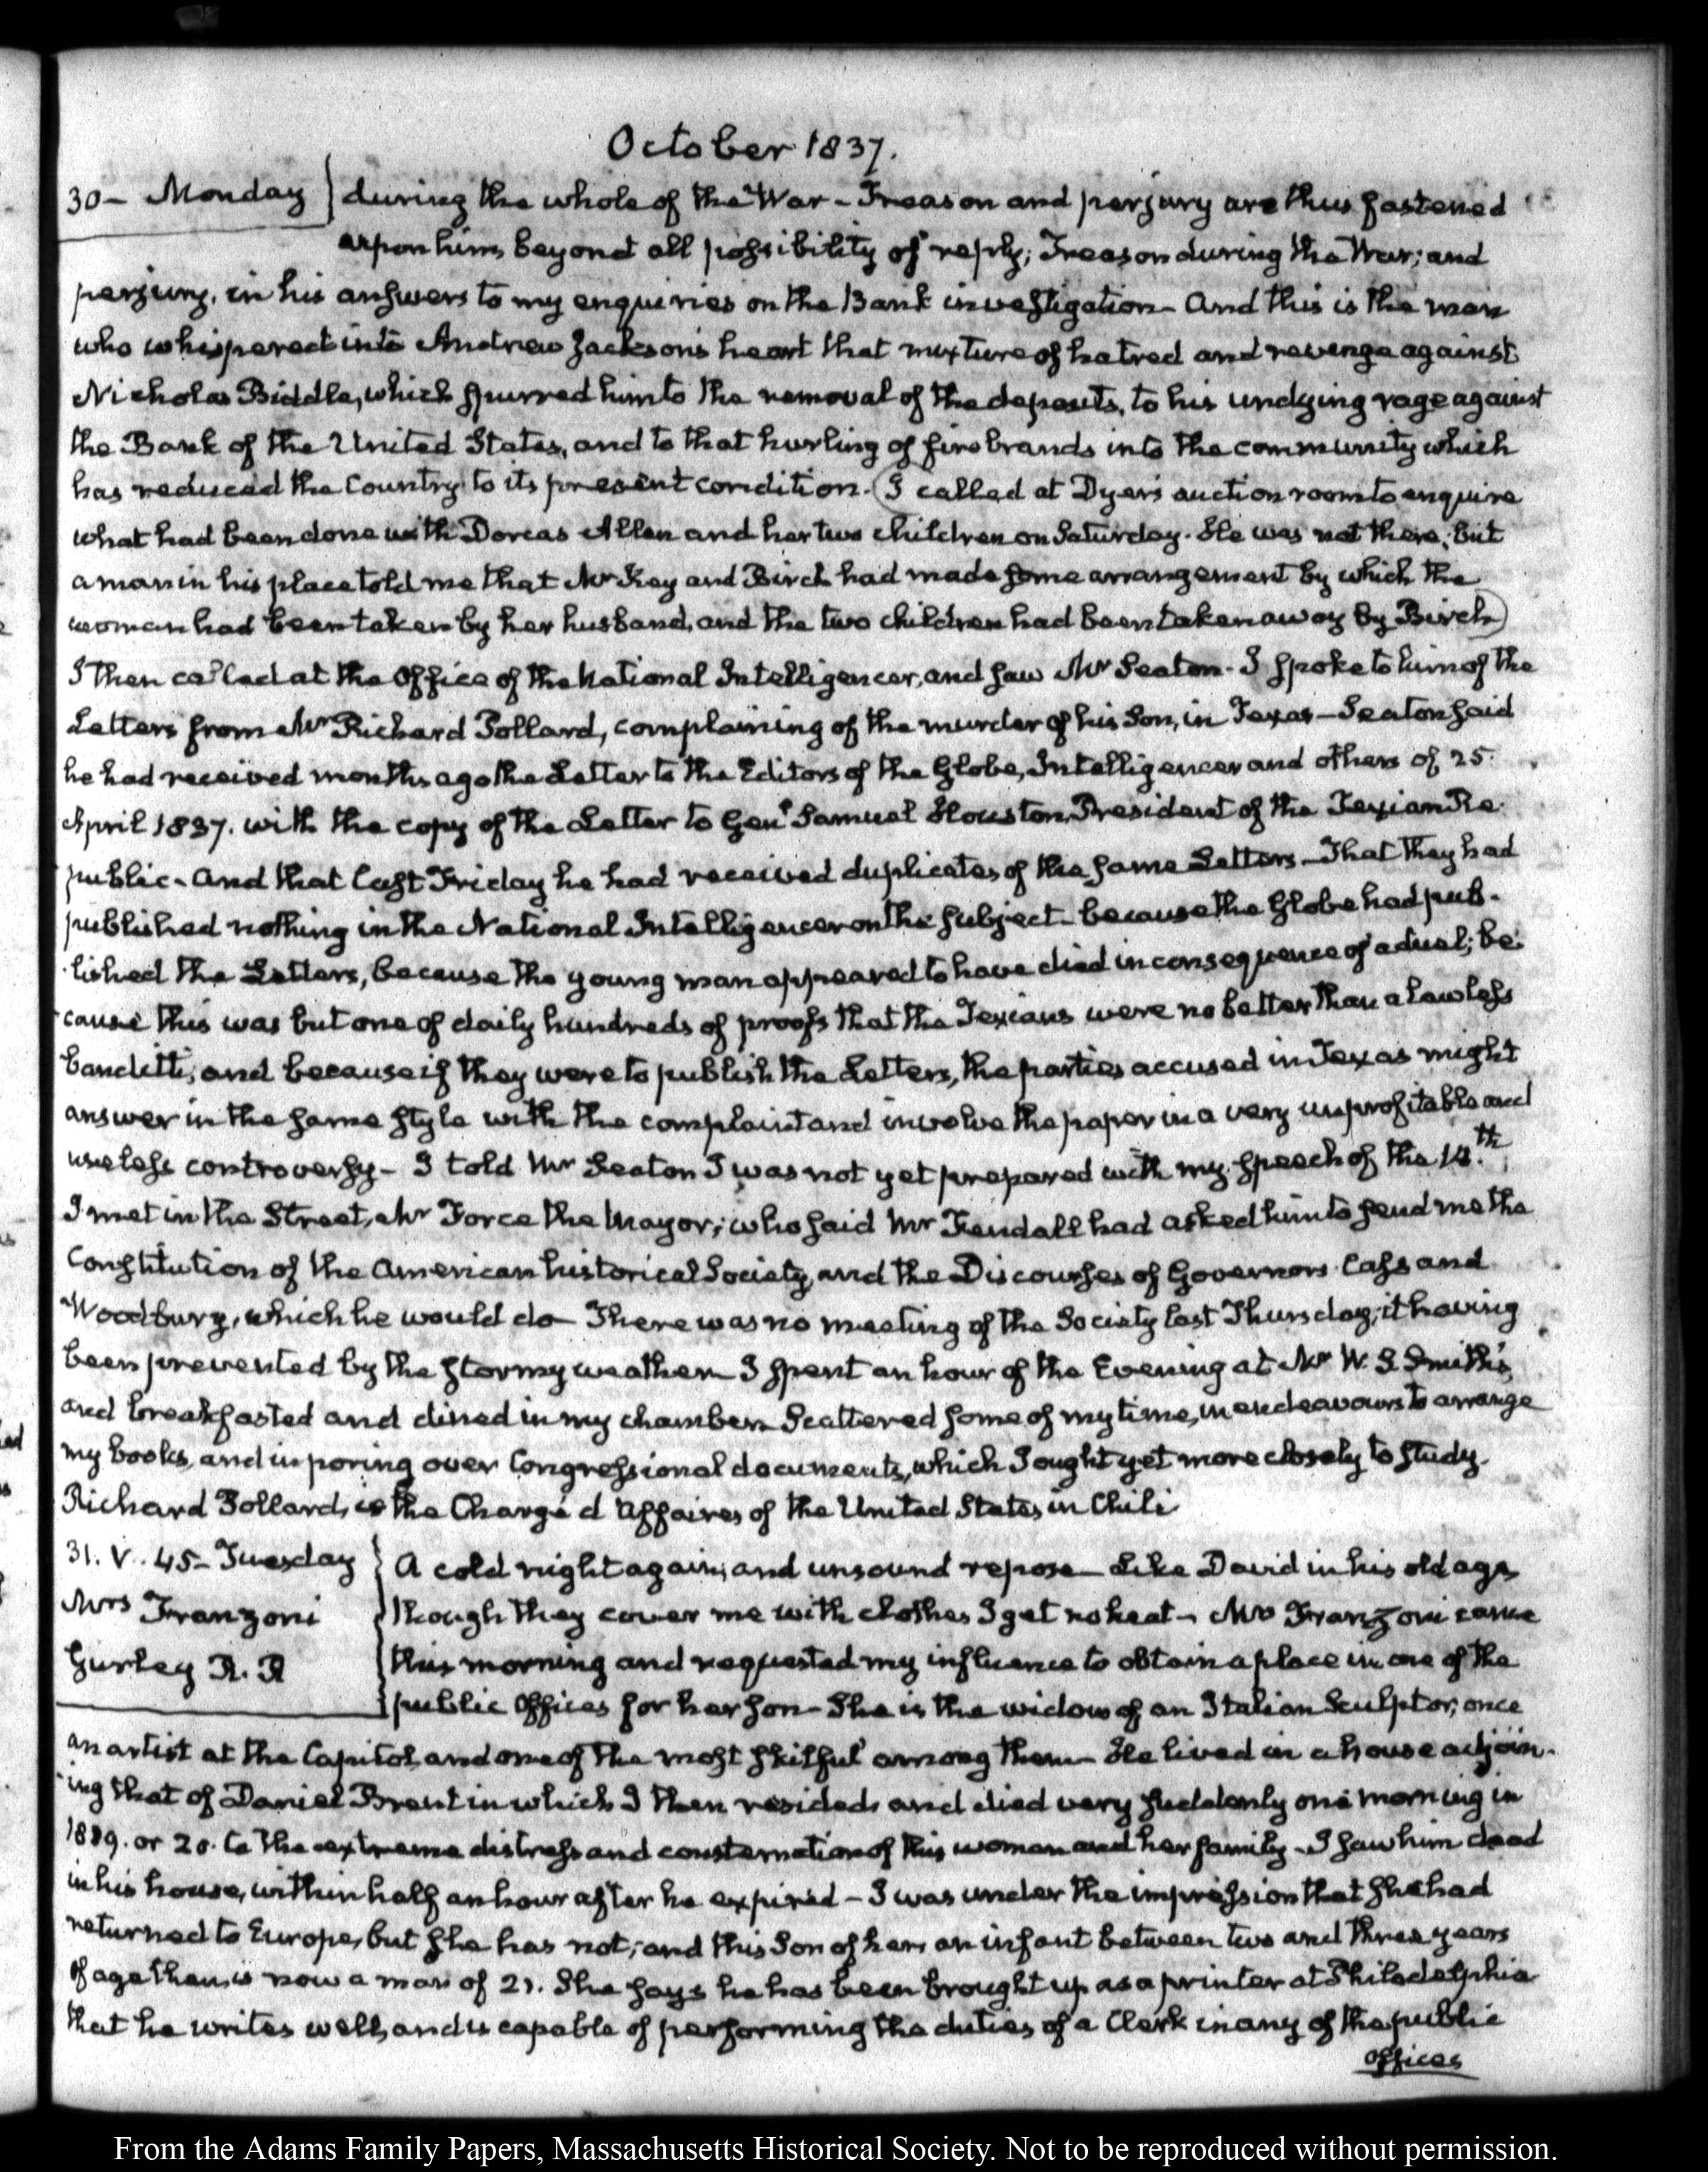 October 1837.
30 – Monday } during the whole of the War – Treason and perjury are thus fastened
upon him, beyond all possibility of reply; Treason during the War; and
perjury, in his answers to my enquiries on the Bank investigation – And this is the man
who whispered into Andrew Jackson's heart that mixture of hatred and revenge against
Nicholas Biddle, which spurred him to the removal of the deposits, to his undying rage against
the Bank of the United States, and to that hurling of firebrands into the community which
has reduced the Country to its present condition. (I called at Dyer's auction room to enquire
what had been done with Dorcas Allen and her two children on Saturday. He was not there; but
a man in his place told me that Mr Key and Birch had made some arrangement by which the
woman had been taken by her husband, and the two children had been taken away by Birch)
I then called at the Office of the National Intelligencer, and saw Mr Seaton – I spoke to him of the
Letters from Mr Richard Pollard, complaining of the murder of his Son, in Texas – Seaton said
he had received months ago the Letter to the Editors of the Globe, Intelligencer and others of 25.
April 1837. with the copy of the Letter to Genl Samuel Houston, President of the Texian Re-
public – and that last Friday he had received duplicates of the same Letters – That they had
published nothing in the National Intelligencer on the subject – because the Globe had pub-
lished the Letters, because the young man appeared to have died in consequence of a duel; be-
cause this was but one of daily hundreds of proofs that the Texians were no better than a lawless
banditti; and because if they were to publish the Letters, the parties accused in Texas might
answer in the same style with the complaint and involve the paper in a very unprofitable and
useless controversy – I told Mr Seaton I was not yet prepared with my speech of the 14.th
I met in the Street, Mr Force the Mayor; who said Mr Kendall had asked him to send me the
Constitution of the American historical Society, and the Discourses of Governors Cass and
Woodbury, which he would do – There was no meeting of the Society last Thursday; it having
been prevented by the stormy weather – I spent an hour of the Evening at Mr W. S. Smith's,
and breakfasted and dined in my chamber. Scattered some of my time, in endeavours to arrange
my books, and in poring over Congressional documents, which I ought yet more closely to study.
Richard Pollard, is the Chargé d'Affaires of the United States in Chili
31. V. 45 – Tuesday } A cold night again; and unsound repose – Like David in his old age,
Mrs Franzoni } though they cover me with clothes I get no heat – Mrs Franzoni came
Gurley R. R } this morning and requested my influence to obtain a place in one of the
public Offices for her son – She is the widow of an Italian Sculptor, once
an artist at the Capitol, and one of the most skilful among them – He lived in a house adjoin-
ing that of Daniel Brent in which I then resided, and died very suddenly one morning in
1819. or 20. to the extreme distress and consternation of this woman and her family – I saw him dead
in his house, within half an hour after he expired – I was under the impression that she had
returned to Europe, but she has not; and this Son of hers an infant between two and three years
of age then, is now a man of 21. She says he has been brought up as a printer at Philadelphia
that he writes well, and is capable of performing the duties of a Clerk in any of the public
offices
From the Adams Family Papers, Massachusetts Historical Society. Not to be reproduced without permission.